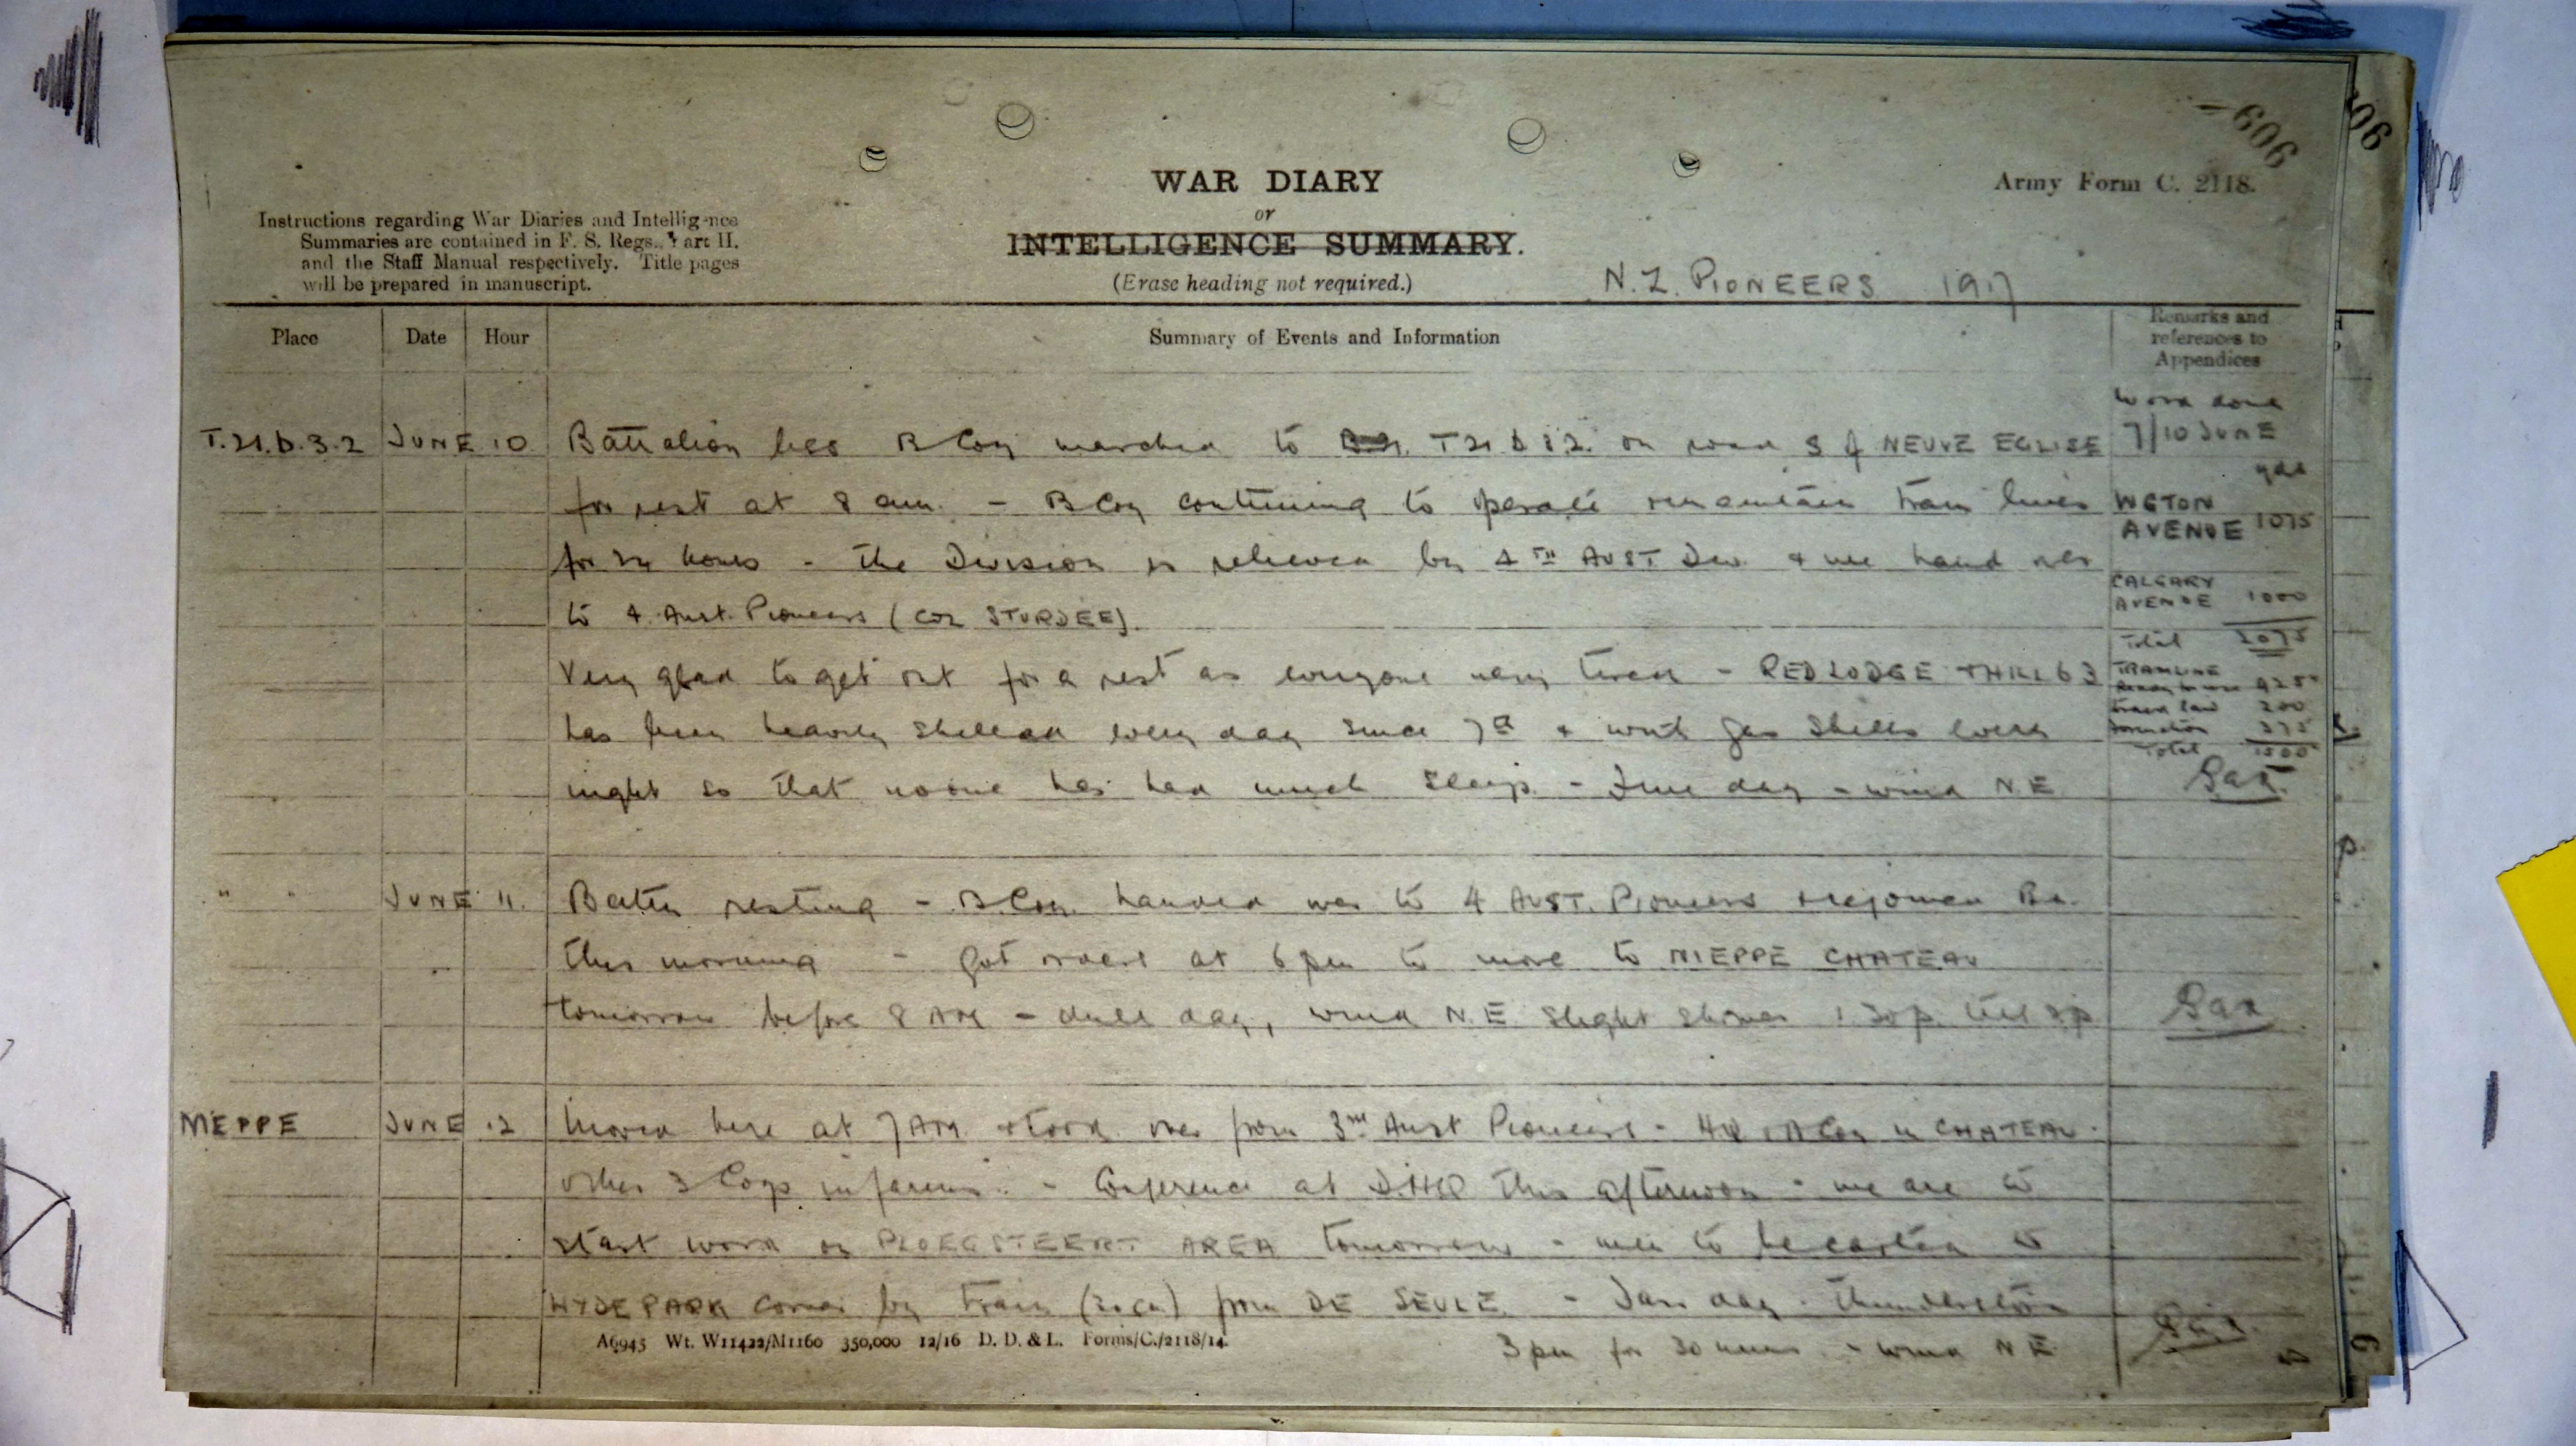 606
Army Form C. 2118.
WAR DIARY
or
INTELLIGENCE SUMMARY.
(Erase heading not required.)
Instructions regarding War Diaries and Intelligence
Summaries are contained in F. S. Regs., Part II.
and the Staff Manual respectively. Title pages
will be prepared in manuscript.
N.Z. PIONEERS 1917
Place Date Hour Summary of Events and Information Remarks and
references to
Appendices
Work done
7/10 JUNE
yds
WGTON
AVENUE 1075
CALGARY
AVENUE 1000
Total 2075
TRAMLINE
925
200
formation 375
Total 1500
T.21.b.3.2 JUNE 10 Battalion less B Coy marched to T 21 b 3.2. on road S of NEUVE EGLISE
for rest at 8 am. - B Coy continuing to operate & maintain tram lines
for 24 hours - The Division is relieved by 4TH AUST Div. & we hand over
to 4 Aust. Pioneers (COL STURDEE).
Very glad to get out for a rest as everyone very tired - RED LODGE T
has been heavily shelled every day since 7th & with gas shells every
night so that no one has had much sleep. - Fine day - wind N.E
" " JUNE 11. Battn resting - B. Coy. handed over to 4 AUST. Pioneers & rejoined Bn.
this morning - Got orders at 6 pm to move to NIEPPE CHATEAU
tomorrow before 8 AM - dull day, wind N.E slight shower 1.30 p. till
NIEPPE JUNE 12 Moved here at 7 AM. & took over from 3rd Aust Pioneers - HQ & A Coy in CHATEAU.
other 3 Coys in farms. - Conference at D.HQ this afternoon - we are to
start work on PLOEGSTEERT AREA tomorrow - men to be carted to
HYDE PARK Corner by train (20 cm) from DE SEULE - day - thunderstorm
3 pm for 30 mins. - wind N E
A6945 Wt. W11422/M1160 350,000 12/16 D. D. & L. Forms/C./2118/14.